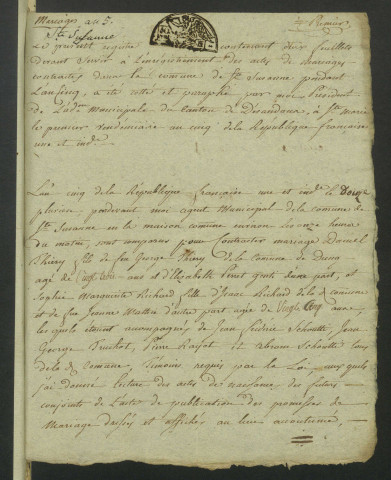 Mariages an 5.
Premier
Ste Susanne
Le present registre contenant deux feuillets
devant servir à l'enregistrement des actes de mariages
contractés dans la commune de Ste Susanne pendant
l'an cinq, a été cotté et paraphé par moi President
de l'adm. Municipale du Canton de Desandans, à Ste Marie
le premier vendémiaire an cinq de la République française
une et indle.
L'an cinq de la République française une et indle. le Douze
pluviose, pardevant moi agent Municipal de la commune de
Ste Susanne en la maison commune environ les onze heures
du matin, sont comparus pour contracter mariage Daniel
Thiery fils de feu George Thiery de la commune de
agé de vingt ans et d'Elizabeth d'une part, et
Sophie Marguerite Richard fille d'Isaac Richard de la commune
et de feu Jeanne d'autre part agée de Vingt Cinq ans,
lesquels étaient accompagnés de Jean Fredric
George Pierre et Abram tous
de la de Commune, Témoins requis par la Loi auxquels
j'ai donné lecture des actes de naissance des futurs
conjoints de l'acte de publication des promesses de
Mariage dressés et affichés au lieu accoutumé,